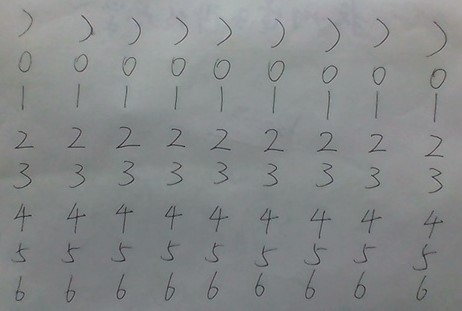 ) ) ) ) ) ) ) ) )
0 0 0 0 0 0 0 0 0
1 1 1 1 1 1 1 1 1
2 2 2 2 2 2 2 2 2
3 3 3 3 3 3 3 3 3
4 4 4 4 4 4 4 4 4
5 5 5 5 5 5 5 5 5
6 6 6 6 6 6 6 6 6